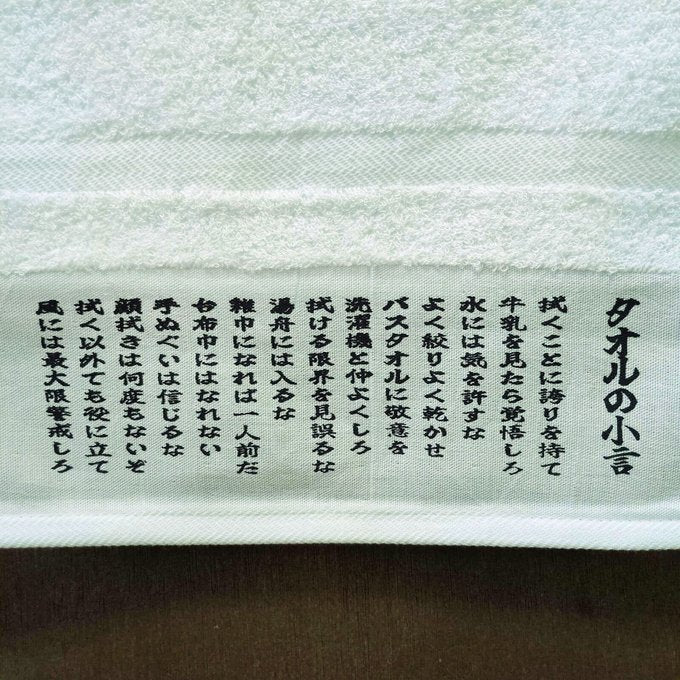 タオルの小言
拭くことに誇りを持て
牛乳を見たら覚悟しろ
水には気を許すな
よく絞りよく乾かせ
バスタオルに敬意を
洗濯機と仲よくしろ
拭ける限界を見誤るな
湯舟には入るな
雑巾になれば一人前だ
台布巾にはなれない
手ぬぐいは信じるな
顔拭きは何度もないぞ
拭く以外でも役に立て
風には最大限警戒しろ